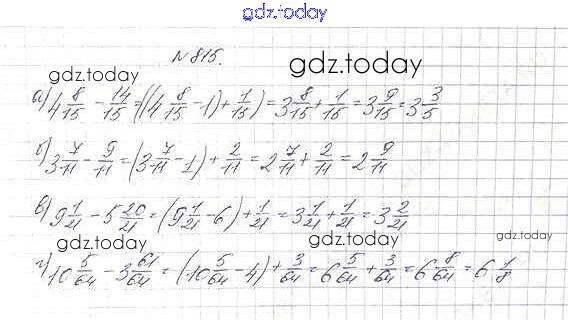 gdz.today
№ 815.
gdz.today
gdz.today
а) 4 8/15 - 14/15 = ((4 8/15 - 1) + 1/15) = 3 8/15 + 1/15 = 3 9/15 = 3 3/5
б) 3 7/11 - 9/11 = (3 7/11 - 1) + 2/11 = 2 7/11 + 2/11 = 2 9/11
в) 9 1/21 - 5 20/21 = (9 1/21 - 6) + 1/21 = 3 1/21 + 1/21 = 3 2/21
gdz.today
gdz.today
gdz.today
г) 10 5/64 - 3 61/64 = (10 5/64 - 4) + 3/64 = 6 5/64 + 3/64 = 6 8/64 = 6 1/8